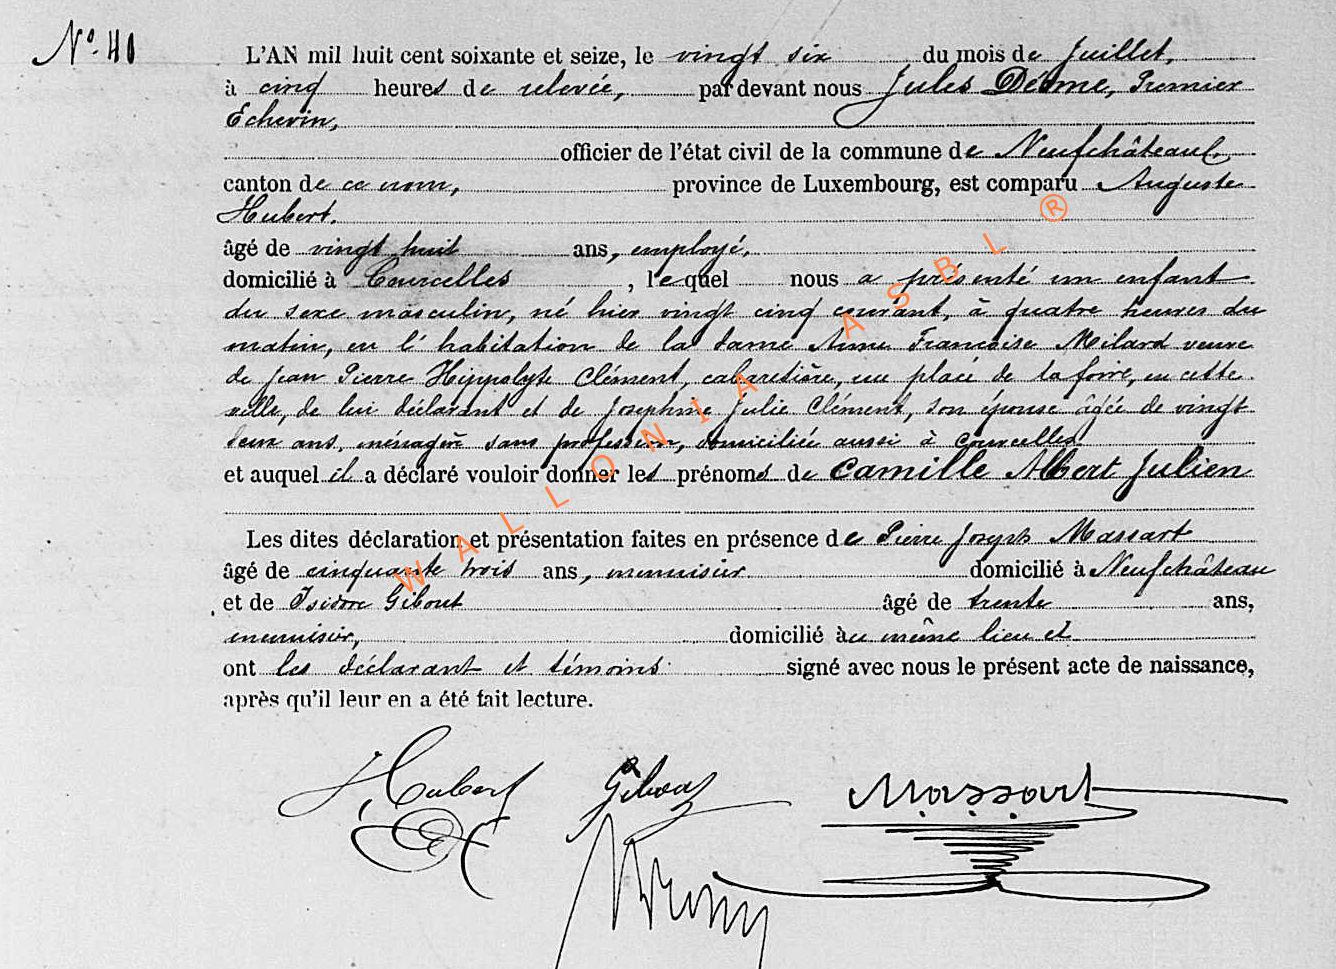 N° 40
L'AN mil huit cent soixante et seize, le vingt six du mois de Juillet,
à cinq heures de relevée, par devant nous Jules Déome, Premier
Echevin,
officier de l'état civil de la commune de Neufchâteau,
canton de ce nom, province de Luxembourg, est comparu Auguste
Hubert,
âgé de vingt huit ans, employé,
domicilié à Courcelles, lequel nous a présenté un enfant
du sexe masculin, né hier vingt cinq courant, à quatre heures du
matin, en l'habitation de la dame Anne Françoise Milard veuve
de Jean Pierre Hippolyte Clément, cabaretière, place de la foire, en cette
ville, de lui déclarant et de Joséphine Julie Clément, son épouse âgée de vingt
deux ans, ménagère sans profession, domiciliée aussi à Courcelles
et auquel il a déclaré vouloir donner les prénoms de Camille Albert Julien
Les dites déclaration et présentation faites en présence de Pierre Joseph Massart
âgé de cinquante trois ans, menuisier domicilié à Neufchâteau
et de Isidore Gibout âgé de trente ans,
menuisier, domicilié au même lieu et
ont les déclarant et témoins signé avec nous le présent acte de naissance,
après qu'il leur en a été fait lecture.
Hubert Gibout Massart
WALLONIA ASBL ®